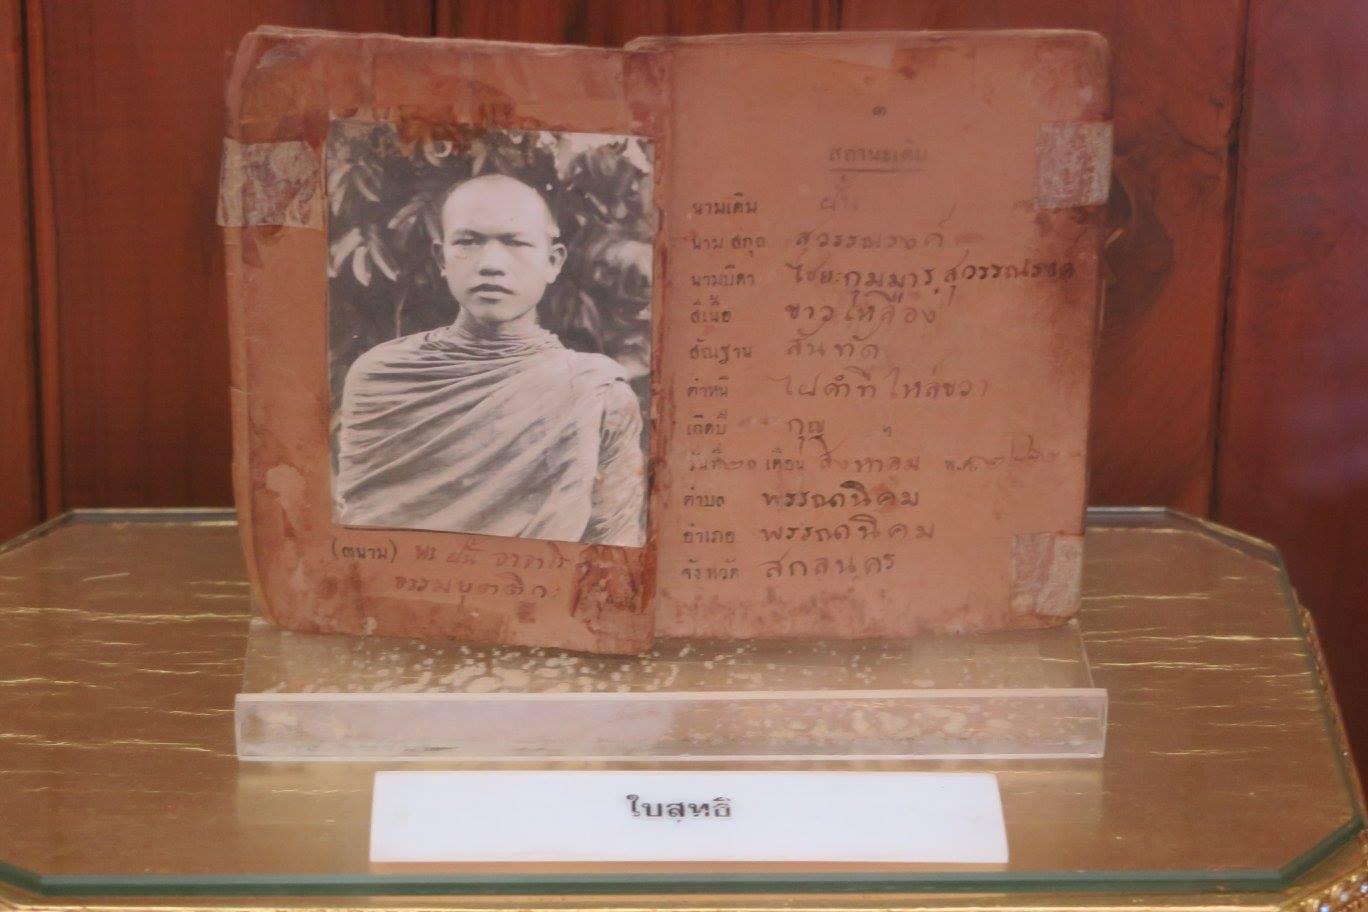 (ฅนาม) พระ ฝั้น อาจาโร
ธรรมยุตติกะ
๑
สถานะเดิม
นามเดิม ฝั้น
นาม สกุล สุวรรณรงค์
นามบิดา ไชยะกุมมาร สุวรรณรงค์
สีเนื้อ ขาว เหลือง
สัณฐาน สันทัด
ตำหนิ ไฝดำที่ไหล่ขวา
เกิดปี กุญ
วันที่ ๒๐ เดือน สิงหาคม พ.ศ.
ตำบล พรรณานิคม
อำเภอ พรรณานิคม
จังหวัด สกลนคร
ใบสุทธิ